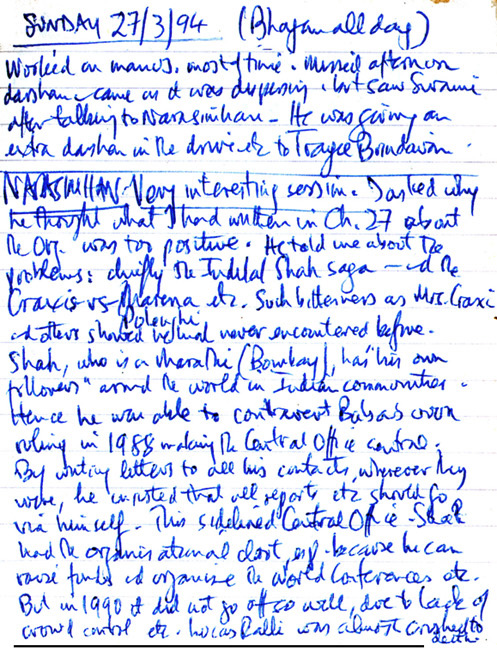 SUNDAY 27/3/94 (Bhajan all day)
Worked on manus. most of time. Missed afternoon
darshan - came as it was dispersing. but saw Swami
after talking to Narasimhan - He was giving an
extra darshan in the drive etc to Brindavan.
NARASIMHAN. Very interesting session. I asked why
he thought what I had written in Ch. 27 about
the Org. was too positive. He told me about the
problems: chiefly the Indulal Shah saga - and the
Craxis vs etc. Such bitterness as Mrs. Craxi
and others showed he had never encountered before.
Shah, who is a Marathi (Bombay), has "his own
followers" around the world in Indian communities.
Hence he was able to contravert Baba's own
ruling in 1988 making the Central Office central.
By writing letters to all his contacts, wherever they
were, he insisted that all reports etc should go
via himself. This sidelined Central Office. Shah
had the organisational clout, esp. because he can
raise funds and organise the World Conferences etc.
But in 1990 it did not go off so well, due to lack of
crowd control etc. Lucas Ralli was almost crushed to
death.